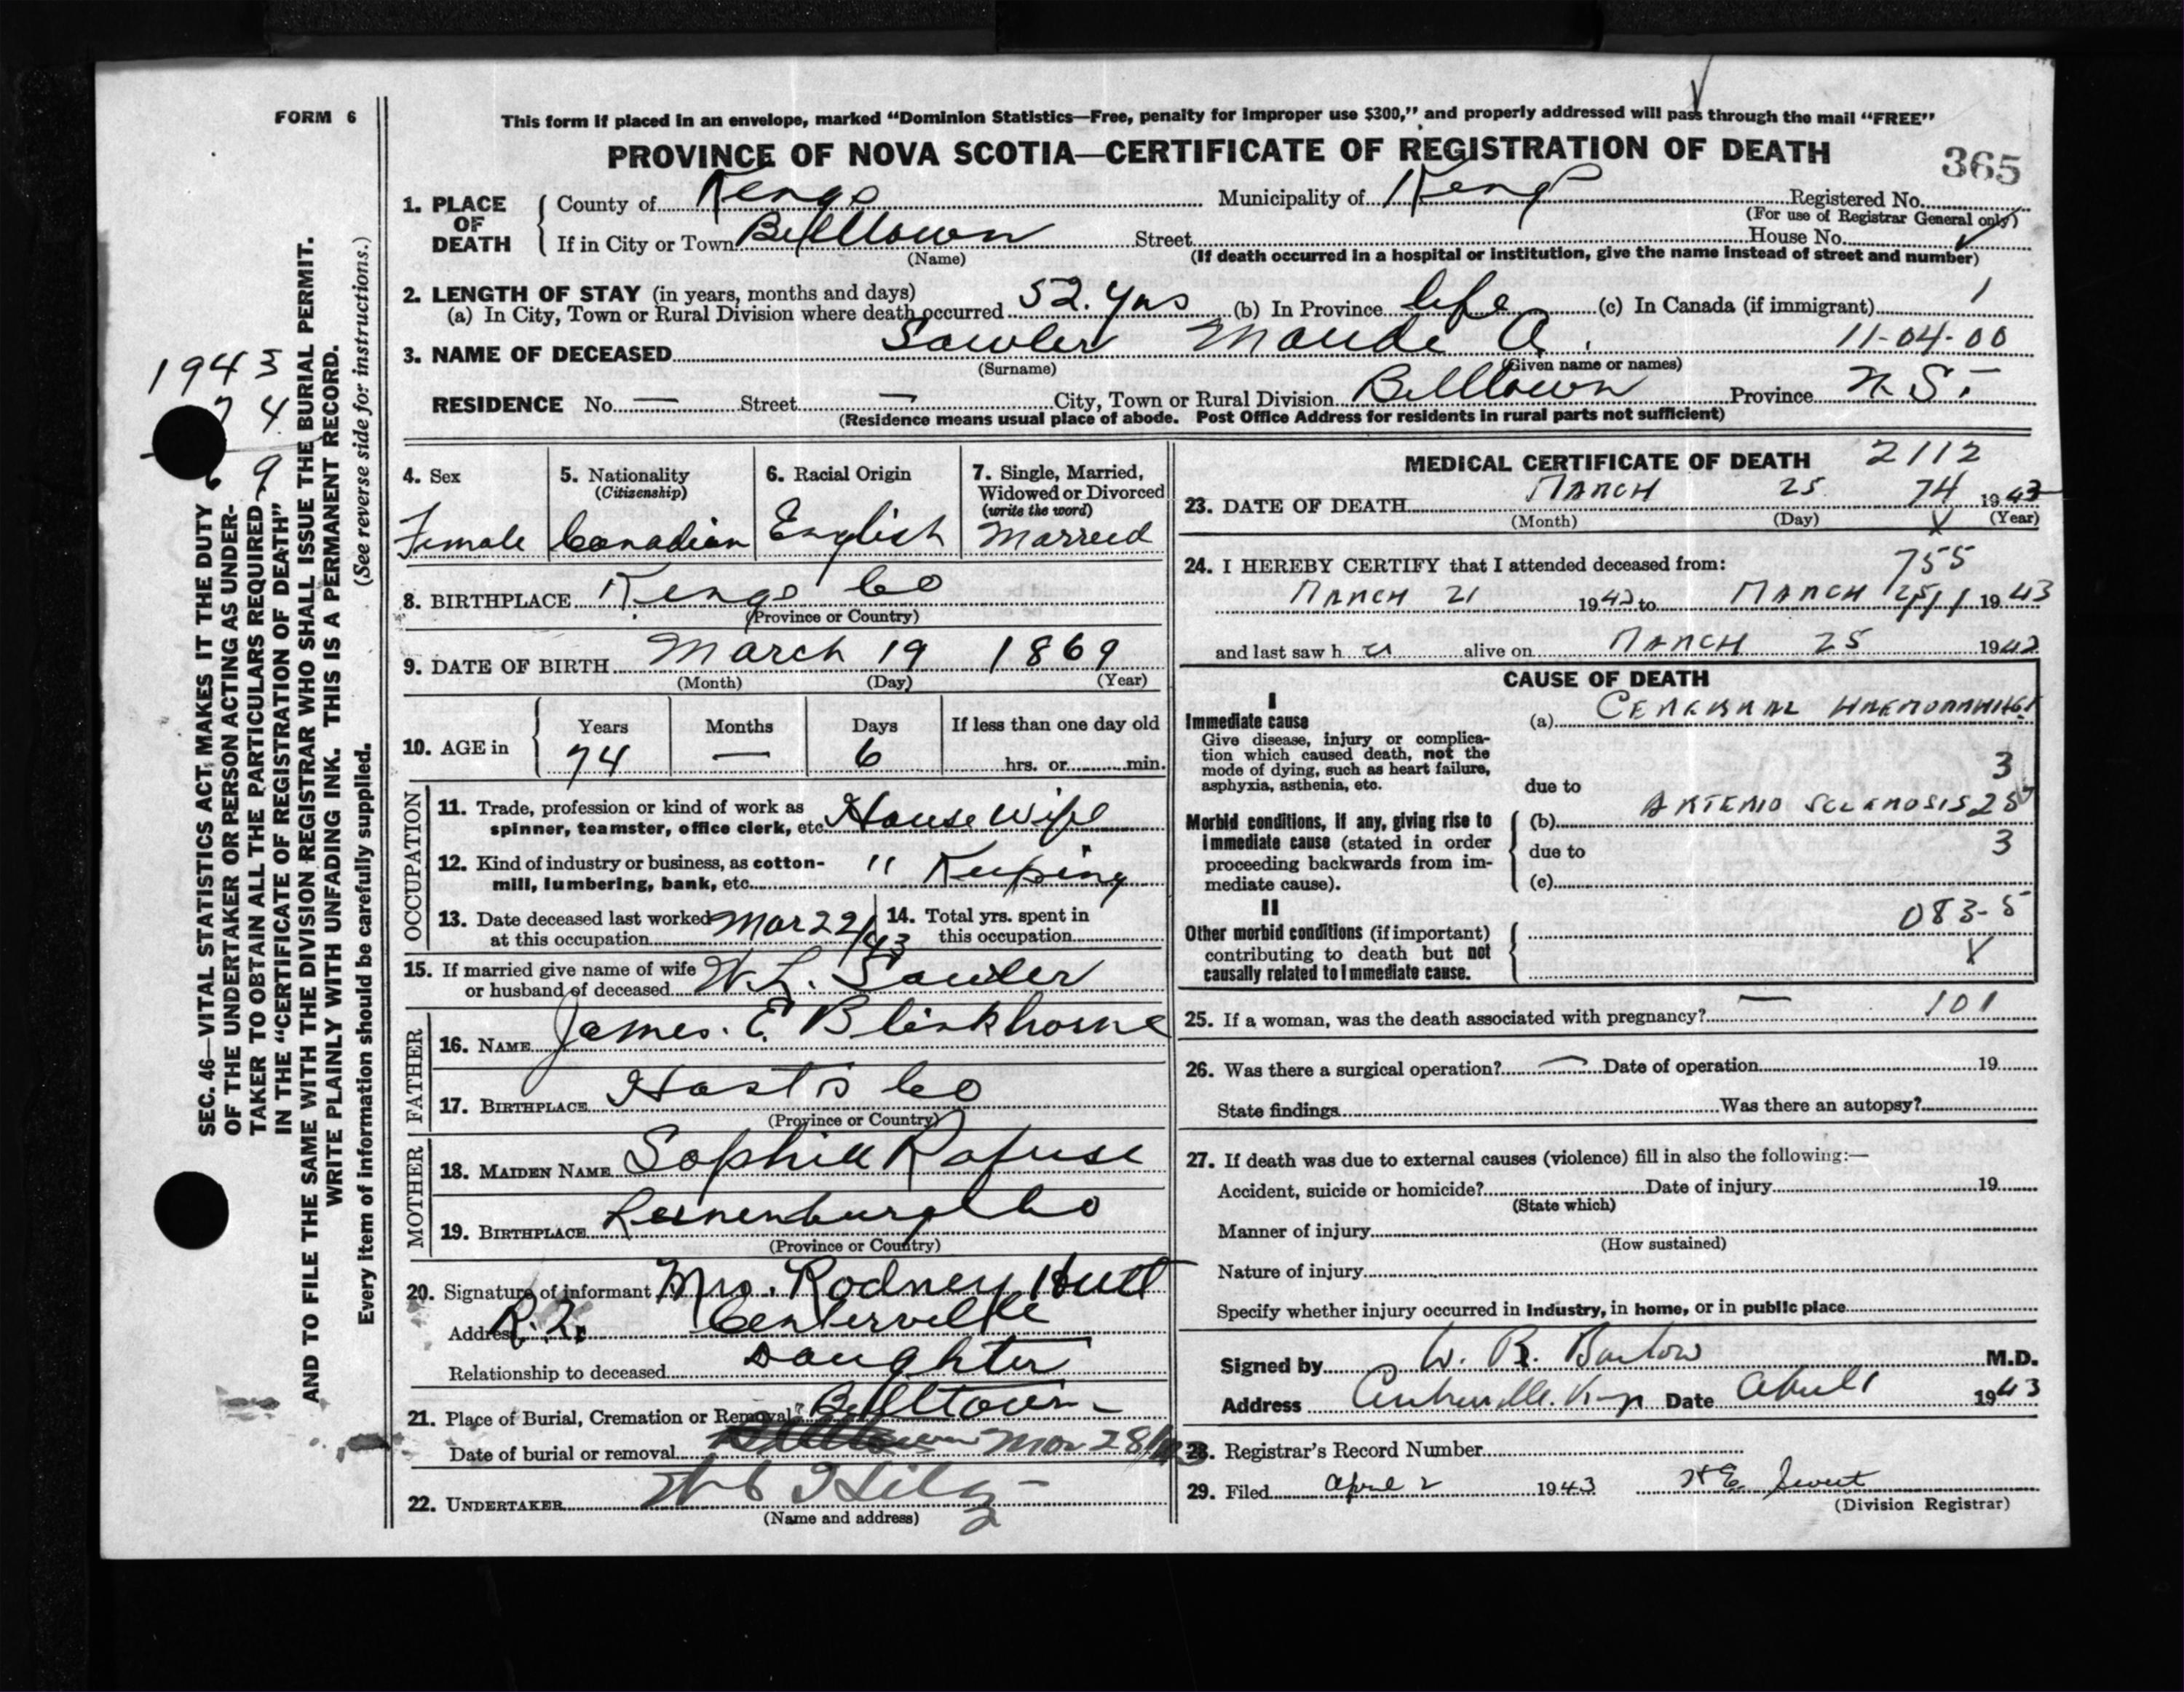 FORM 6
This form if placed in an envelope, marked "Dominion Statistics—Free, penalty for improper use $300," and properly addressed will pass through the mail "FREE"
PROVINCE OF NOVA SCOTIA—CERTIFICATE OF REGISTRATION OF DEATH
365
1. PLACE OF DEATH
County of Kings Municipality of Kings Registered No.
(For use of Registrar General only)
If in City or Town Belltown Street House No.
(Name)
(If death occurred in a hospital or institution, give the name instead of street and number)
2. LENGTH OF STAY (in years, months and days)
(a) In City, Town or Rural Division where death occurred 52. yrs (b) In Province life (c) In Canada (if immigrant) 1
3. NAME OF DECEASED Sawler Maude A. 11-04-00
(Surname) (Given name or names)
RESIDENCE No. — Street — City, Town or Rural Division Belltown Province N.S.
(Residence means usual place of abode. Post Office Address for residents in rural parts not sufficient)
4. Sex
Female
5. Nationality
(Citizenship)
Canadian
6. Racial Origin
English
7. Single, Married,
Widowed or Divorced
(write the word)
Married
8. BIRTHPLACE Kings Co
(Province or Country)
9. DATE OF BIRTH March 19 1869
(Month) (Day) (Year)
10. AGE in
Years Months Days If less than one day old
74 — 6 hrs. or min.
OCCUPATION
11. Trade, profession or kind of work as
spinner, teamster, office clerk, etc. House wife
12. Kind of industry or business, as cotton-
mill, lumbering, bank, etc. " Keeping
13. Date deceased last worked
at this occupation Mar 22/43
14. Total yrs. spent in
this occupation
15. If married give name of wife
or husband of deceased W.L. Sawler
FATHER
16. NAME James. E. Blinkhorne
17. BIRTHPLACE Hants Co
(Province or Country)
MOTHER
18. MAIDEN NAME Sophill Rafuse
19. BIRTHPLACE Lunenburg Co
(Province or Country)
20. Signature of informant Mrs. Rodney Hutt
Address R.2. Centerville
Relationship to deceased Daughter
21. Place of Burial, Cremation or Removal? Belltown
Date of burial or removal Mar 28/43
22. UNDERTAKER Hiltz
(Name and address)
MEDICAL CERTIFICATE OF DEATH 2112
23. DATE OF DEATH MARCH 25 74 1943
(Month) (Day) (Year)
24. I HEREBY CERTIFY that I attended deceased from: 755
MARCH 21 1943 to MARCH 25 1943
and last saw h er alive on MARCH 25 1943
CAUSE OF DEATH
I
Immediate cause
Give disease, injury or complica-
tion which caused death, not the
mode of dying, such as heart failure,
asphyxia, asthenia, etc.
(a) CEREBRAL HAEMORRHAGE
3
due to
Morbid conditions, if any, giving rise to
immediate cause (stated in order
proceeding backwards from im-
mediate cause).
(b) ARTERIO SCLEROSIS 25
due to 3
(c)
II
Other morbid conditions (if important)
contributing to death but not
causally related to immediate cause.
083-5
X
25. If a woman, was the death associated with pregnancy? — 101
26. Was there a surgical operation? — Date of operation 19
State findings Was there an autopsy?
27. If death was due to external causes (violence) fill in also the following:—
Accident, suicide or homicide? Date of injury 19
(State which)
Manner of injury
(How sustained)
Nature of injury
Specify whether injury occurred in industry, in home, or in public place
Signed by W. R. Barlow M.D.
Address Date April 1 1943
28. Registrar's Record Number
29. Filed April 2 1943 H E Swet
(Division Registrar)
1943
74
69
SEC. 46—VITAL STATISTICS ACT MAKES IT THE DUTY
OF THE UNDERTAKER OR PERSON ACTING AS UNDER-
TAKER TO OBTAIN ALL THE PARTICULARS REQUIRED
IN THE "CERTIFICATE OF REGISTRATION OF DEATH"
AND TO FILE THE SAME WITH THE DIVISION REGISTRAR WHO SHALL ISSUE THE BURIAL PERMIT.
WRITE PLAINLY WITH UNFADING INK. THIS IS A PERMANENT RECORD.
Every item of information should be carefully supplied. (See reverse side for instructions.)